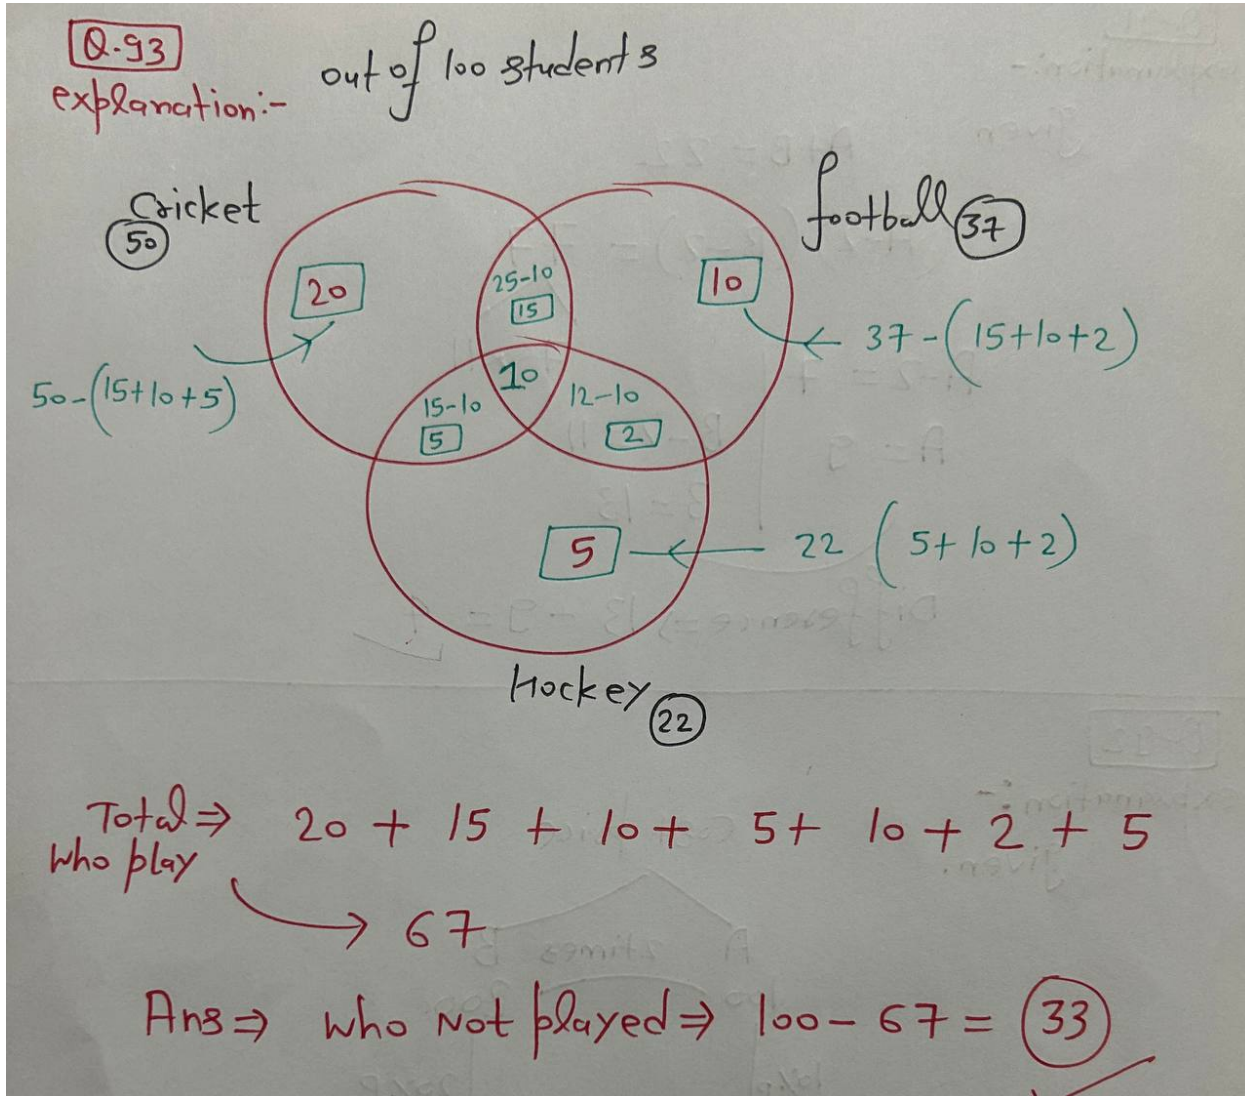 Q.93
explanation:- out of 100 students
Cricket
50
football 37
20
25-10
15
10
50-(15+10+5)
37-(15+10+2)
10
15-10
5
12-10
2
5
22 (5+10+2)
Hockey 22
Total ⇒ 20 + 15 + 10 + 5 + 10 + 2 + 5
who play
→ 67
Ans ⇒ who Not played ⇒ 100 - 67 = 33